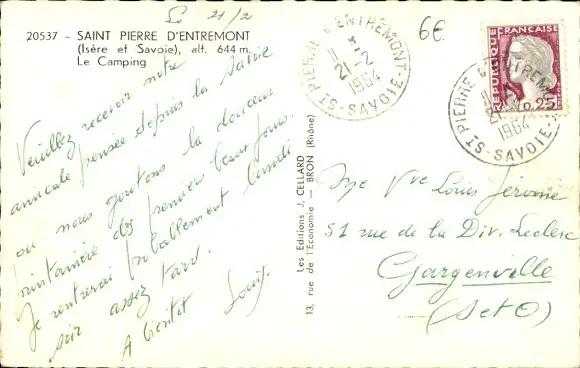 Le 21/2
20537 - SAINT PIERRE D'ENTREMONT
(Isère et Savoie), alt. 644 m.
Le Camping
Veuillez recevoir notre
amicale pensée depuis la Savoie
où nous goutons la douceur
printanière des premiers beaux jours.
Je rentrerai probablement lundi
soir assez tard.
A bientot Louis.
Les Editions J. CELLARD
13, rue de l'Economie — BRON (Rhône)
6€
ST PIERRE D'ENTREMONT
21 -2
1964
SAVOIE
REPUBLIQUE FRANCAISE
0,25
ST PIERRE D'ENTREM
1964
SAVOIE
Mme Vve Louis Jérome
51 rue de la Div. Leclerc
Gargenville
(S et O)